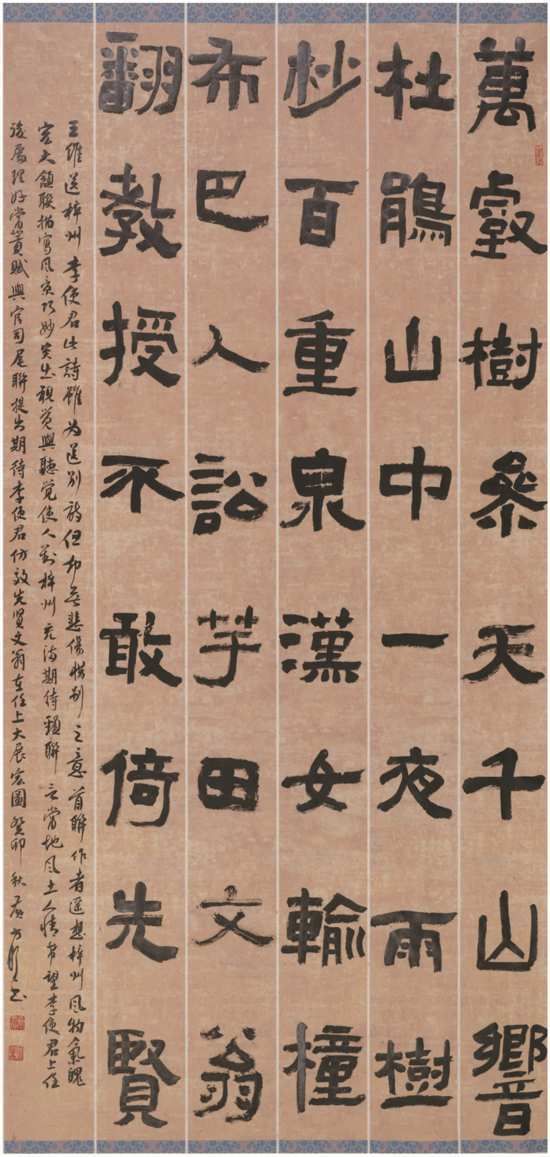 萬壑樹參天千山響
杜鵑山中一夜雨樹
杪百重泉漢女輸橦
布巴人訟芋田文翁
翻教授不敢倚先賢
王維送梓州李使君此詩雖為送別詩但却無悲傷惜別之意首聯作者遥想梓州風物氣魄
宏大頷聯描寫風景巧妙突出視覺與聽覺使人對梓州充滿期待頸聯言當地風土人情希望李使君上任
後處理好賦與官司尾聯提出期待李使君仿效先賢文翁在任上大展宏圖癸卯秋書